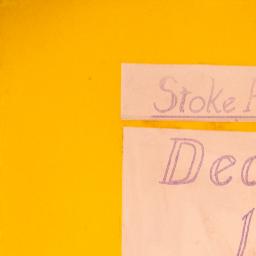 Stoke
Dec
1